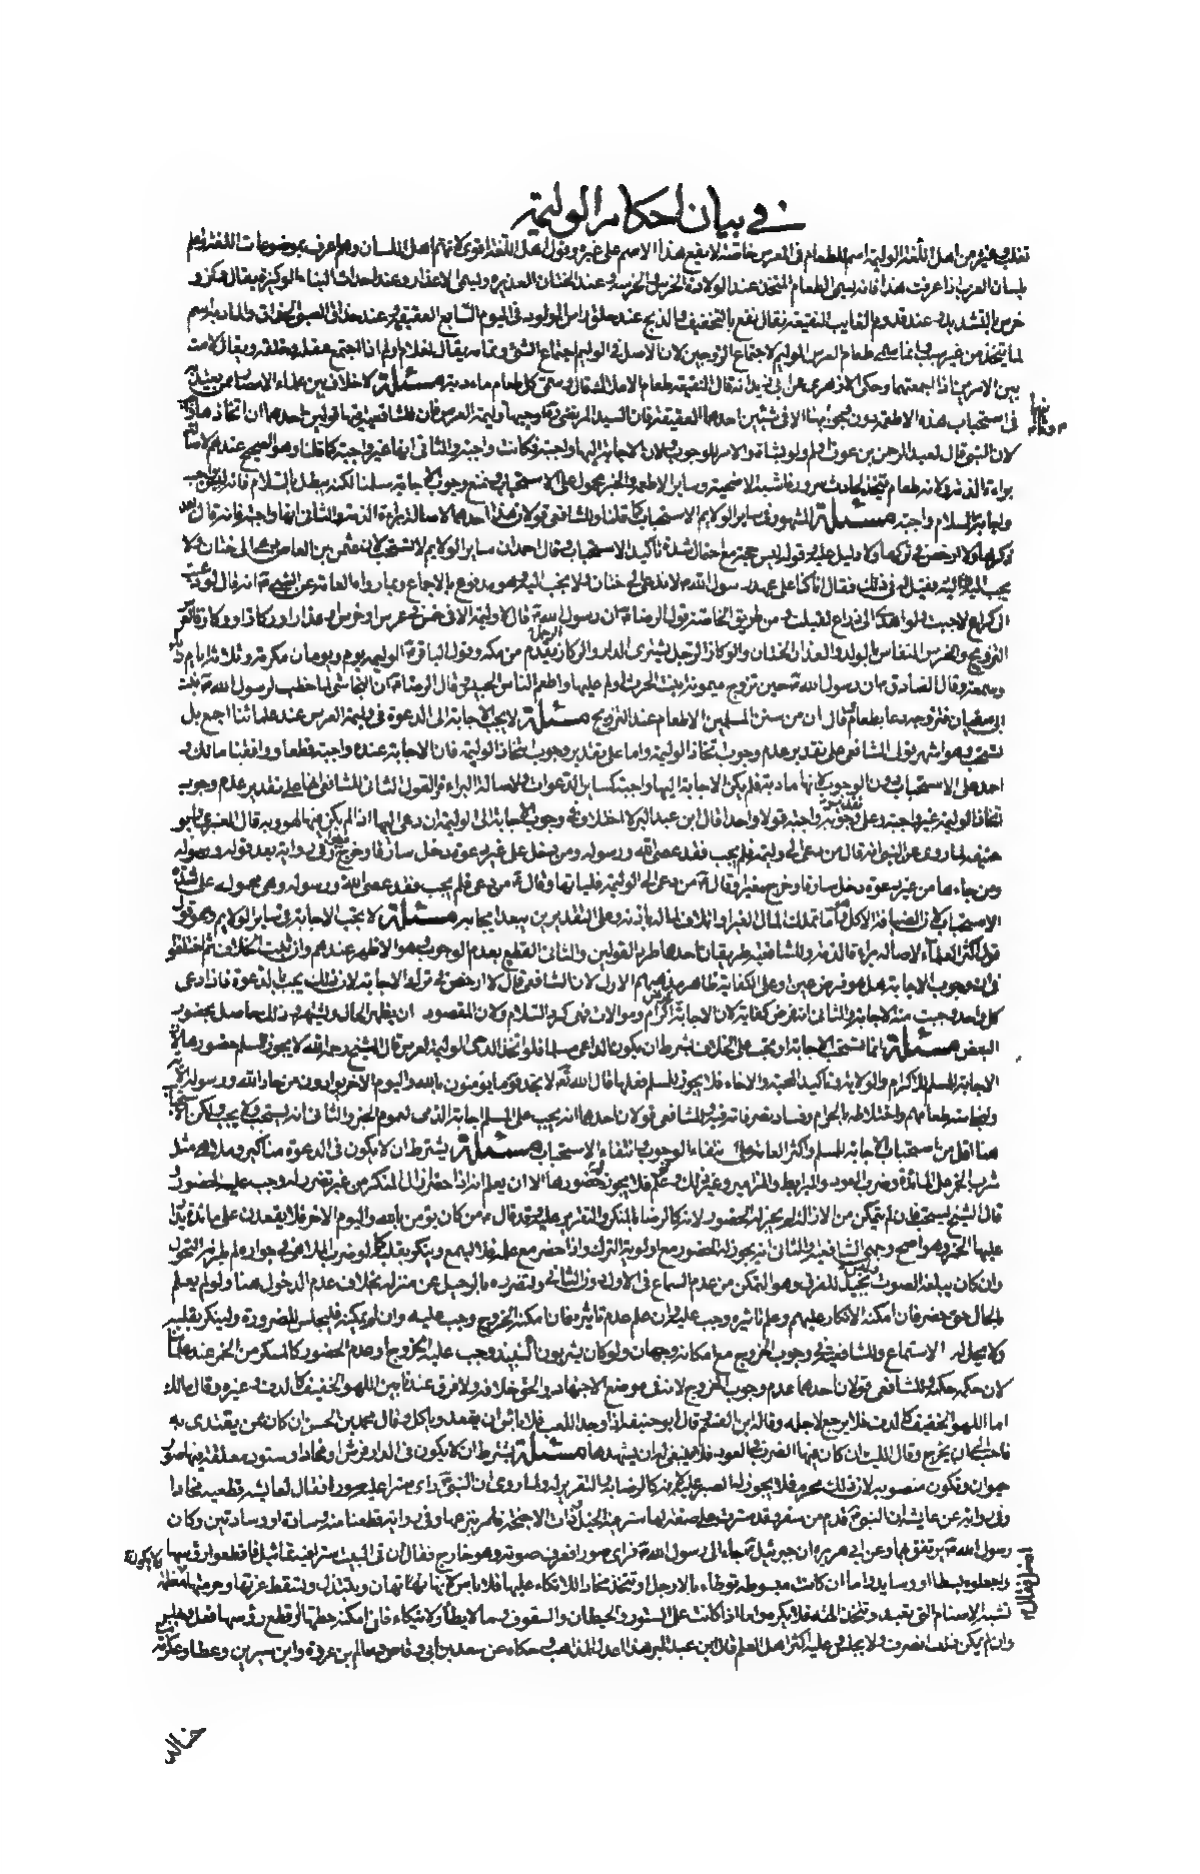 في بيان احكام الوليمة
تغلب وغيره من اهل اللغة الوليمة اسم للطعام في العرس خاصة لا يقع هذا الاسم على غيره وقول اهل اللغة اقوى لانهم اهل اللسان وهم اعرف بموضوعات اللغة واعلم
بلسان العرب اذا عرفت هذا فانه يسمى الطعام المتخذ عند الولادة الخرس والخرسة وعند الختان العذيرة ويسمى الاعذار وعند احداث البناء الوكيرة يقال وكر و
خرس بالتشديد وعند قدوم الغايب النقيعة يقال نقع بالتخفيف والذبح عند حلق راس المولود في اليوم السابع العقيقة وعند حذاق الصبي الحذاق والمادبة اسم
لما يتخذ من غير سبب وانما سمي طعام العرس الوليمة لاجتماع الزوجين لان الاصل في الوليمة اجتماع الشئ وتمامه يقال للغلام اولم اذا اجتمع عقله وخلقه ويقال لامت
بين الامرين اذا جمعتهما وحكى الازهري عن ابي زيد انه قال النقيعة طعام الاملاك قال وسمي كل طعام مادبة مسئلة لا خلاف بين علماء الامصار ممن يعتد به
في استحباب هذه الاطعمة دون وجوبها الا في شيئين احدهما العقيقة فان السيد المرتضى اوجبها وليمة العرس فان للشافعي فيها قولين احدهما ان اتخاذها واجب
لان النبي قال لعبد الرحمن بن عوف اولم ولو بشاة والامر للوجوب ولان الاجابة اليها واجبة فكانت واجبة والثاني انها غير واجبة كما قلنا وهو الصحيح عندهم لاصالة
براءة الذمة ولانه طعام يتخذ لحادث سرور فاشبه الاضحية وساير الاطعمة والخبر محمول على الاستحباب ونمنع وجوب الاجابة سلمنا لكنه يبطل بالسلام فانه ليس بواجب
واجابة السلام واجبة مسئلة المشهور في ساير الولايم الاستحباب كما قلنا وللشافعي قولان هذا احدهما لاصالة براءة الذمة والثاني انها واجبة فانه قال بعد
ذكرها ولا ارخص في تركها ولا دليل عليه وقوله ليس حجة مع احتمال شدة تاكيد الاستحباب وقال احمد ان ساير الولايم لا تستحب لان عثمن بن العاص دعي الى ختان فلا
يجب اليه فقيل له في ذلك فقال انا كنا على عهد رسول الله لا ندعى الى ختان ولا نجب اليه وهو مدفوع بالاجماع وبما رواه العامة عن النبي انه قال لو دعيت
الى كراع لاجبت ولو اهدي الى ذراع لقبلت ومن طريق الخاصة قول الرضا ان رسول الله قال لا وليمة الا في خمس في عرس او خرس او عذار او وكار او ركاز فالعرس
التزويج والخرس النفاس بالولد والعذار الختان والوكار الرجل يشتري الدار والركاز الرجل يقدم من مكة وقول الباقر الوليمة يوم ويومان مكرمة وثلاثة ايام رياء
وسمعة وقال الصادق ان رسول الله حين تزوج ميمونة بنت الحرث اولم عليها واطعم الناس الحيس وقال الرضا ان النجاشي لما خطب لرسول الله بنت
ابي سفيان فزوجه دعا بطعام وقال ان من سنن المسلمين الاطعام عند التزويج مسئلة لا يجب الاجابة الى الدعوة في وليمة العرس عند علمائنا اجمع بل
تستحب وهو اشهر قولي الشافعي على تقدير عدم وجوب اتخاذ الوليمة واما على تقدير وجوب اتخاذ الوليمة فان الاجابة عنده واجبة قطعا ووافقنا مالك و
احمد على الاستحباب دون الوجوب لانها مادبة فلم يكن الاجابة اليها واجبة كساير الدعوات ولاصالة البراءة والقول الثاني للشافعي انها على تقدير عدم وجوب
اتخاذ الوليمة غير واجبة وعلى تقدير وجوبه واجبة قولا واحدا قال ابن عبد البر لا خلاف في وجوب الاجابة الى الوليمة لمن دعي اليها اذا لم يكن فيها لهو وبه قال العنبري وابو
حنيفة لما روي عن النبي انه قال من دعي الى وليمة فلم يجب فقد عصى الله ورسوله ومن دخل على غير دعوة دخل سارقا وخرج مغيرا وفي رواية بعد قوله ورسوله
ومن جاءها من غير دعوة دخل سارقا وخرج مغيرا وقال من دعي الى الوليمة فلياتها وقال من دعي فلم يجب فقد عصى الله ورسوله وهي محمولة على شدة
الاستحباب لان الضيافة الاكل
مسئلة لا يجب الاجابة في ساير الولايم وهو قول
قول اكثر العلماء لاصالة براءة الذمة وللشافعية طريقان احدهما طرد القولين والثاني القطع بعدم الوجوب وهو الاظهر عندهم وان ثبت الخلاف ثم اختلفوا
في ان وجوب الاجابة هل هو فرض عين او على الكفاية
كل واحد وجبت منه الاجابة والثاني انه فرض كفاية لان الاجابة اكرام وموالات فهي كرد السلام ولان المقصود ان يظهر الحال ويشتهر وذلك حاصل بحضور
البعض مسئلة انما تستحب الاجابة او تجب على الخلاف بشرط ان يكون الداعي مسلما فلو اتخذ الذمي الوليمة لعرس قال الشيخ رحمه الله لا يجوز للمسلم حضورها لان
الاجابة للمسلم للاكرام والموالاة وتاكيد المحبة والاخاء فلا يجوز للمسلم فعلها قال الله تعالى لا تجد قوما يؤمنون بالله واليوم الاخر يوادون من حاد الله ورسوله
ولنجاسة طعامهم واختلاطه بالحرام وفساد تصرفاته وللشافعي قولان احدهما انه يجب على المسلم اجابة الذمي لعموم الخبر والثاني انه يستحب ولا يجب ولكن الاستحباب
هنا اقل من استحباب الاجابة المسلم واكثر العامة على انتفاء الوجوب وانتفاء الاستحباب مسئلة يشترط ان لا يكون في الدعوة مناكير وملاهي مثل
شرب الخمر على المائدة وضرب العود والبرابط والمزامير وغير ذلك ولو علم فلا يجوز له حضورها الا ان يعلم انه اذا حضر زال المنكر من غير تضرر له وجب عليه الحضور و
قال الشيخ يستحب فان لم يتمكن من الازالة لم يجز له الحضور لانه كالرضا بالمنكر والتقرير عليه وقد قال من كان يؤمن بالله واليوم الاخر فلا يقعدن على مائدة يدار
عليها الخمر وهو اصح وجهي الشافعية والثاني انه يجوز له الحضور مع اولوية الترك واذا حضر مع علمه فلا يسمع وينكر بقلبه كما لو ضرب الملاهي في جواره لم يلزمه التحول
وان كان يبلغه الصوت
للفرق وهو التمكن من عدم السماع في الاول دون الثاني ولتضرره بالرحيل عن منزله بخلاف عدم الدخول هنا ولو لم يعلم
بالحال حتى حضر فان امكنه الانكار عليهم وعلم تاثيره وجب عليه وان علم عدم تاثيره فان امكنه الخروج وجب عليه وان لم يمكنه فليجلس للضرورة ولينكر بقلبه
ولا يحل له الاستماع وللشافعية في وجوب الخروج مع امكانه وجهان ولو كان يشربون النبيذ وجب عليه الخروج او عدم الحضور كالمسكر من الخمر عند علمائنا
لان حكمه حكمه وللشافعي قولان احدهما عدم وجوب الخروج لانه في موضع الاجتهاد والحق خلافه ولا فرق عندنا بين اللهو الخفيف كالدف وغيره وقال مالك
اما اللهو الخفيف كالدف فلا يرجع لاجله وقاله ابن القاسم قال ابو حنيفة اذا وجد اللعب فلا باس ان يقعد وياكل وقال محمد بن الحسن ان كان ممن يقتدى به
فاحب الي ان يخرج وقال الليث ان كان فيها الضرب في العود فلا ينبغي له ان يشهدها مسئلة يشترط ان لا يكون في الدار فرش او مخاد او ستور معلقة فيها صور
حيوان وتكون منصوبة لان ذلك محرم فلا يجوز له الصبر عليه لانه كالرضا به والتقرير له ولما روي ان النبي راى سترا عليه صور
وفي رواية عن عايشة ان النبي قدم من سفر وقد سترت على صفة لها سترا فيه الخيل ذات الاجنحة فامر بنزعها وفي رواية قطعنا منه وسادة او وسادتين وكان
رسول الله يرتفق بها وعن ابي هريرة ان جبرئيل جاء الى رسول الله فراى صورا فعرف صوته وهو خارج فقال ان في البيت سترا فيه تماثيل فاقطعوا رؤسها
واجعلوه بسطا او وسايد واما ان كانت مبسوطة توطاء بالارجل او تتخذ مخاد للاتكاء عليها فلا باس لانها تهان وتبتذل وتسقط عزتها وحرمتها
تشبه الاصنام التي تعبد وتتخذ الهة فلا يكرموا اما اذا كانت على الستور والحيطان والسقوف وما لا يطأ ولا يتكاء فان امكنه حطها او قطع رؤسها فعل وجلس
وان لم يكن ذلك انصرف ولا يجلس وعليه اكثر اهل العلم قال ابن عبد البر هذا اعدل المذاهب وحكاه عن سعد بن ابي وقاص وسالم بن عروة وابن سيرين وعطا وعكرمة
خالد